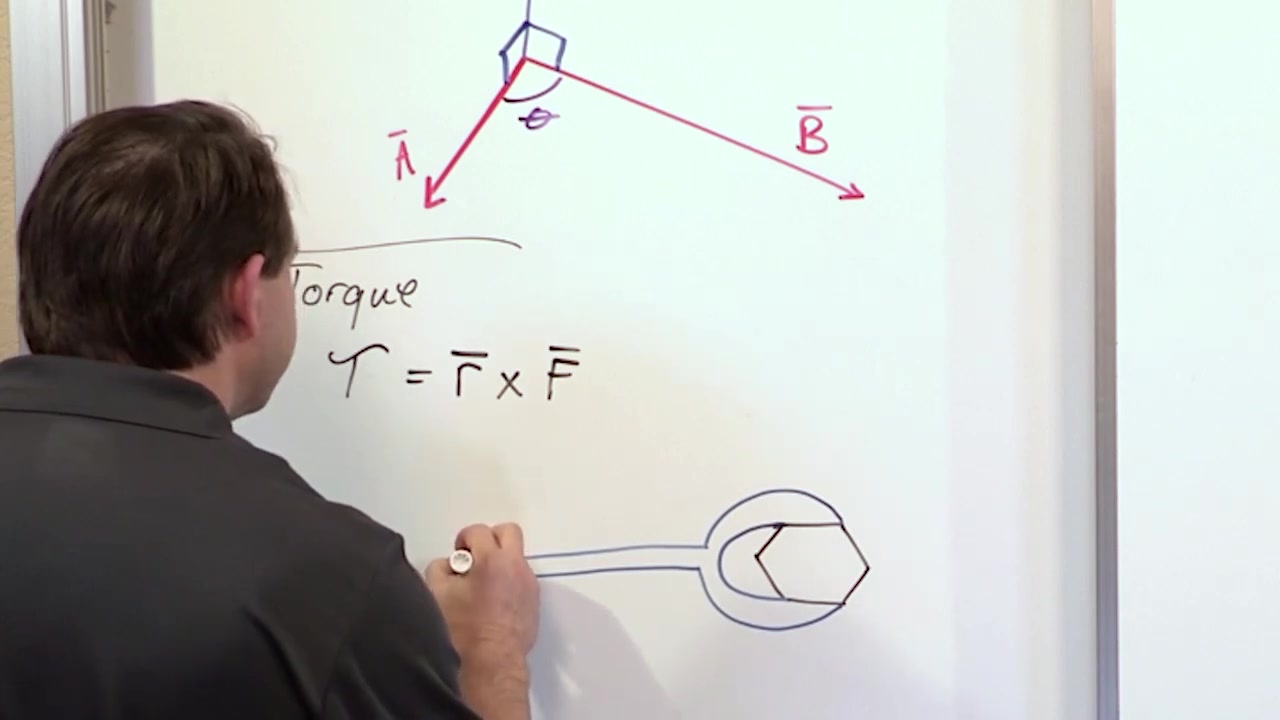 B̅
θ
A̅
Torque
τ = r̅ × F̅